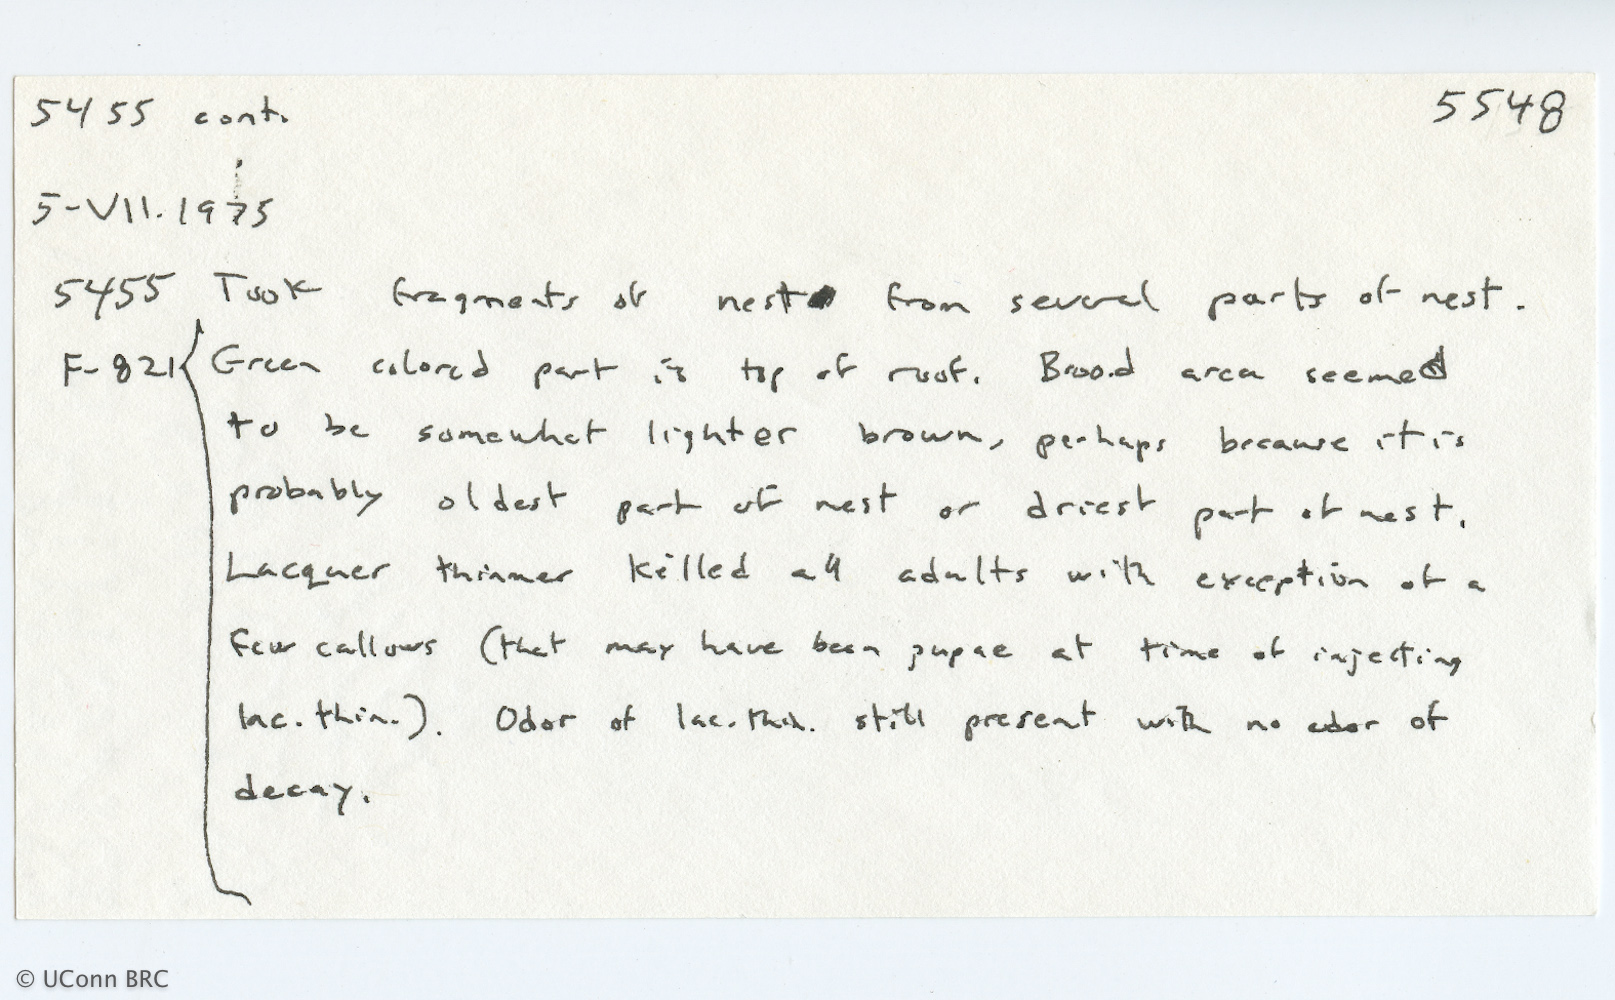 5455 cont.
5548
5-VII.1975
5455 Took fragments of nest from several parts of nest.
F-821 Green colored part is top of roof. Brood area seemed
to be somewhat lighter brown, perhaps because it is
probably oldest part of nest or driest part of nest.
Lacquer thinner killed all adults with exception of a
few callows (that may have been pupae at time of injecting
lac. thin.). Odor of lac. thin. still present with no odor of
decay.
© UConn BRC